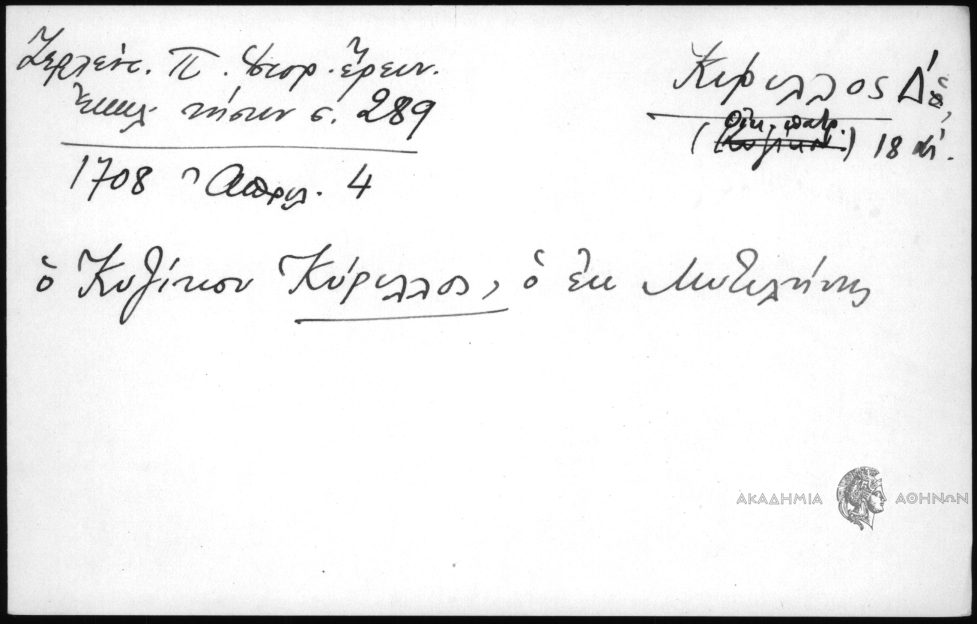 Ζερλέντ. Π. Ἱστορ. ἔρευν.
ἐκκλ. νήσων σ. 289
1708 Ἀπριλ. 4
Κύριλλος Δ΄,
(οἰκ. πατρ.) 18 αἰ.
ὁ Κυζίκου Κύριλλος, ὁ ἐκ Μυτιλήνης
ΑΚΑΔΗΜΙΑ ΑΘΗΝΩΝ